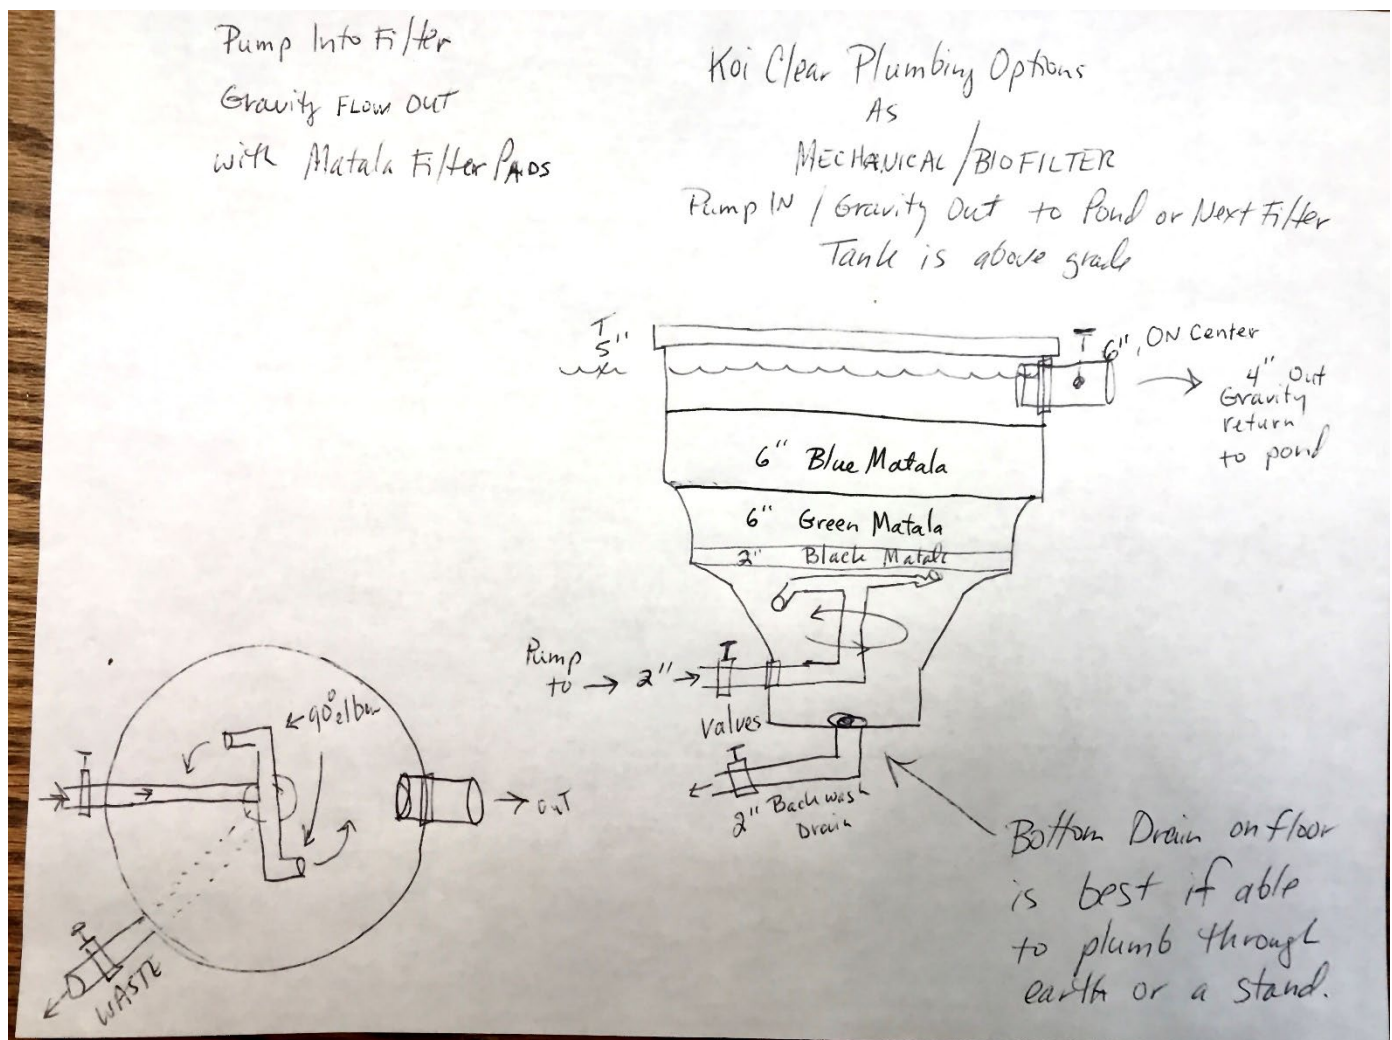 Pump Into Filter
Gravity FLOW OUT
with Matala Filter PADS
Koi Clear Plumbing Options
AS
MECHANICAL/BIOFILTER
Pump IN / Gravity Out to Pond or Next Filter
Tank is above grade
5"
6", ON Center
4" Out
Gravity
return
to pond
6" Blue Matala
6" Green Matala
2" Black Matala
Pump
to → 2" →
Valves
2" Backwash
Drain
90° elbow
→ OUT
WASTE
Bottom Drain on floor
is best if able
to plumb through
earth or a stand.